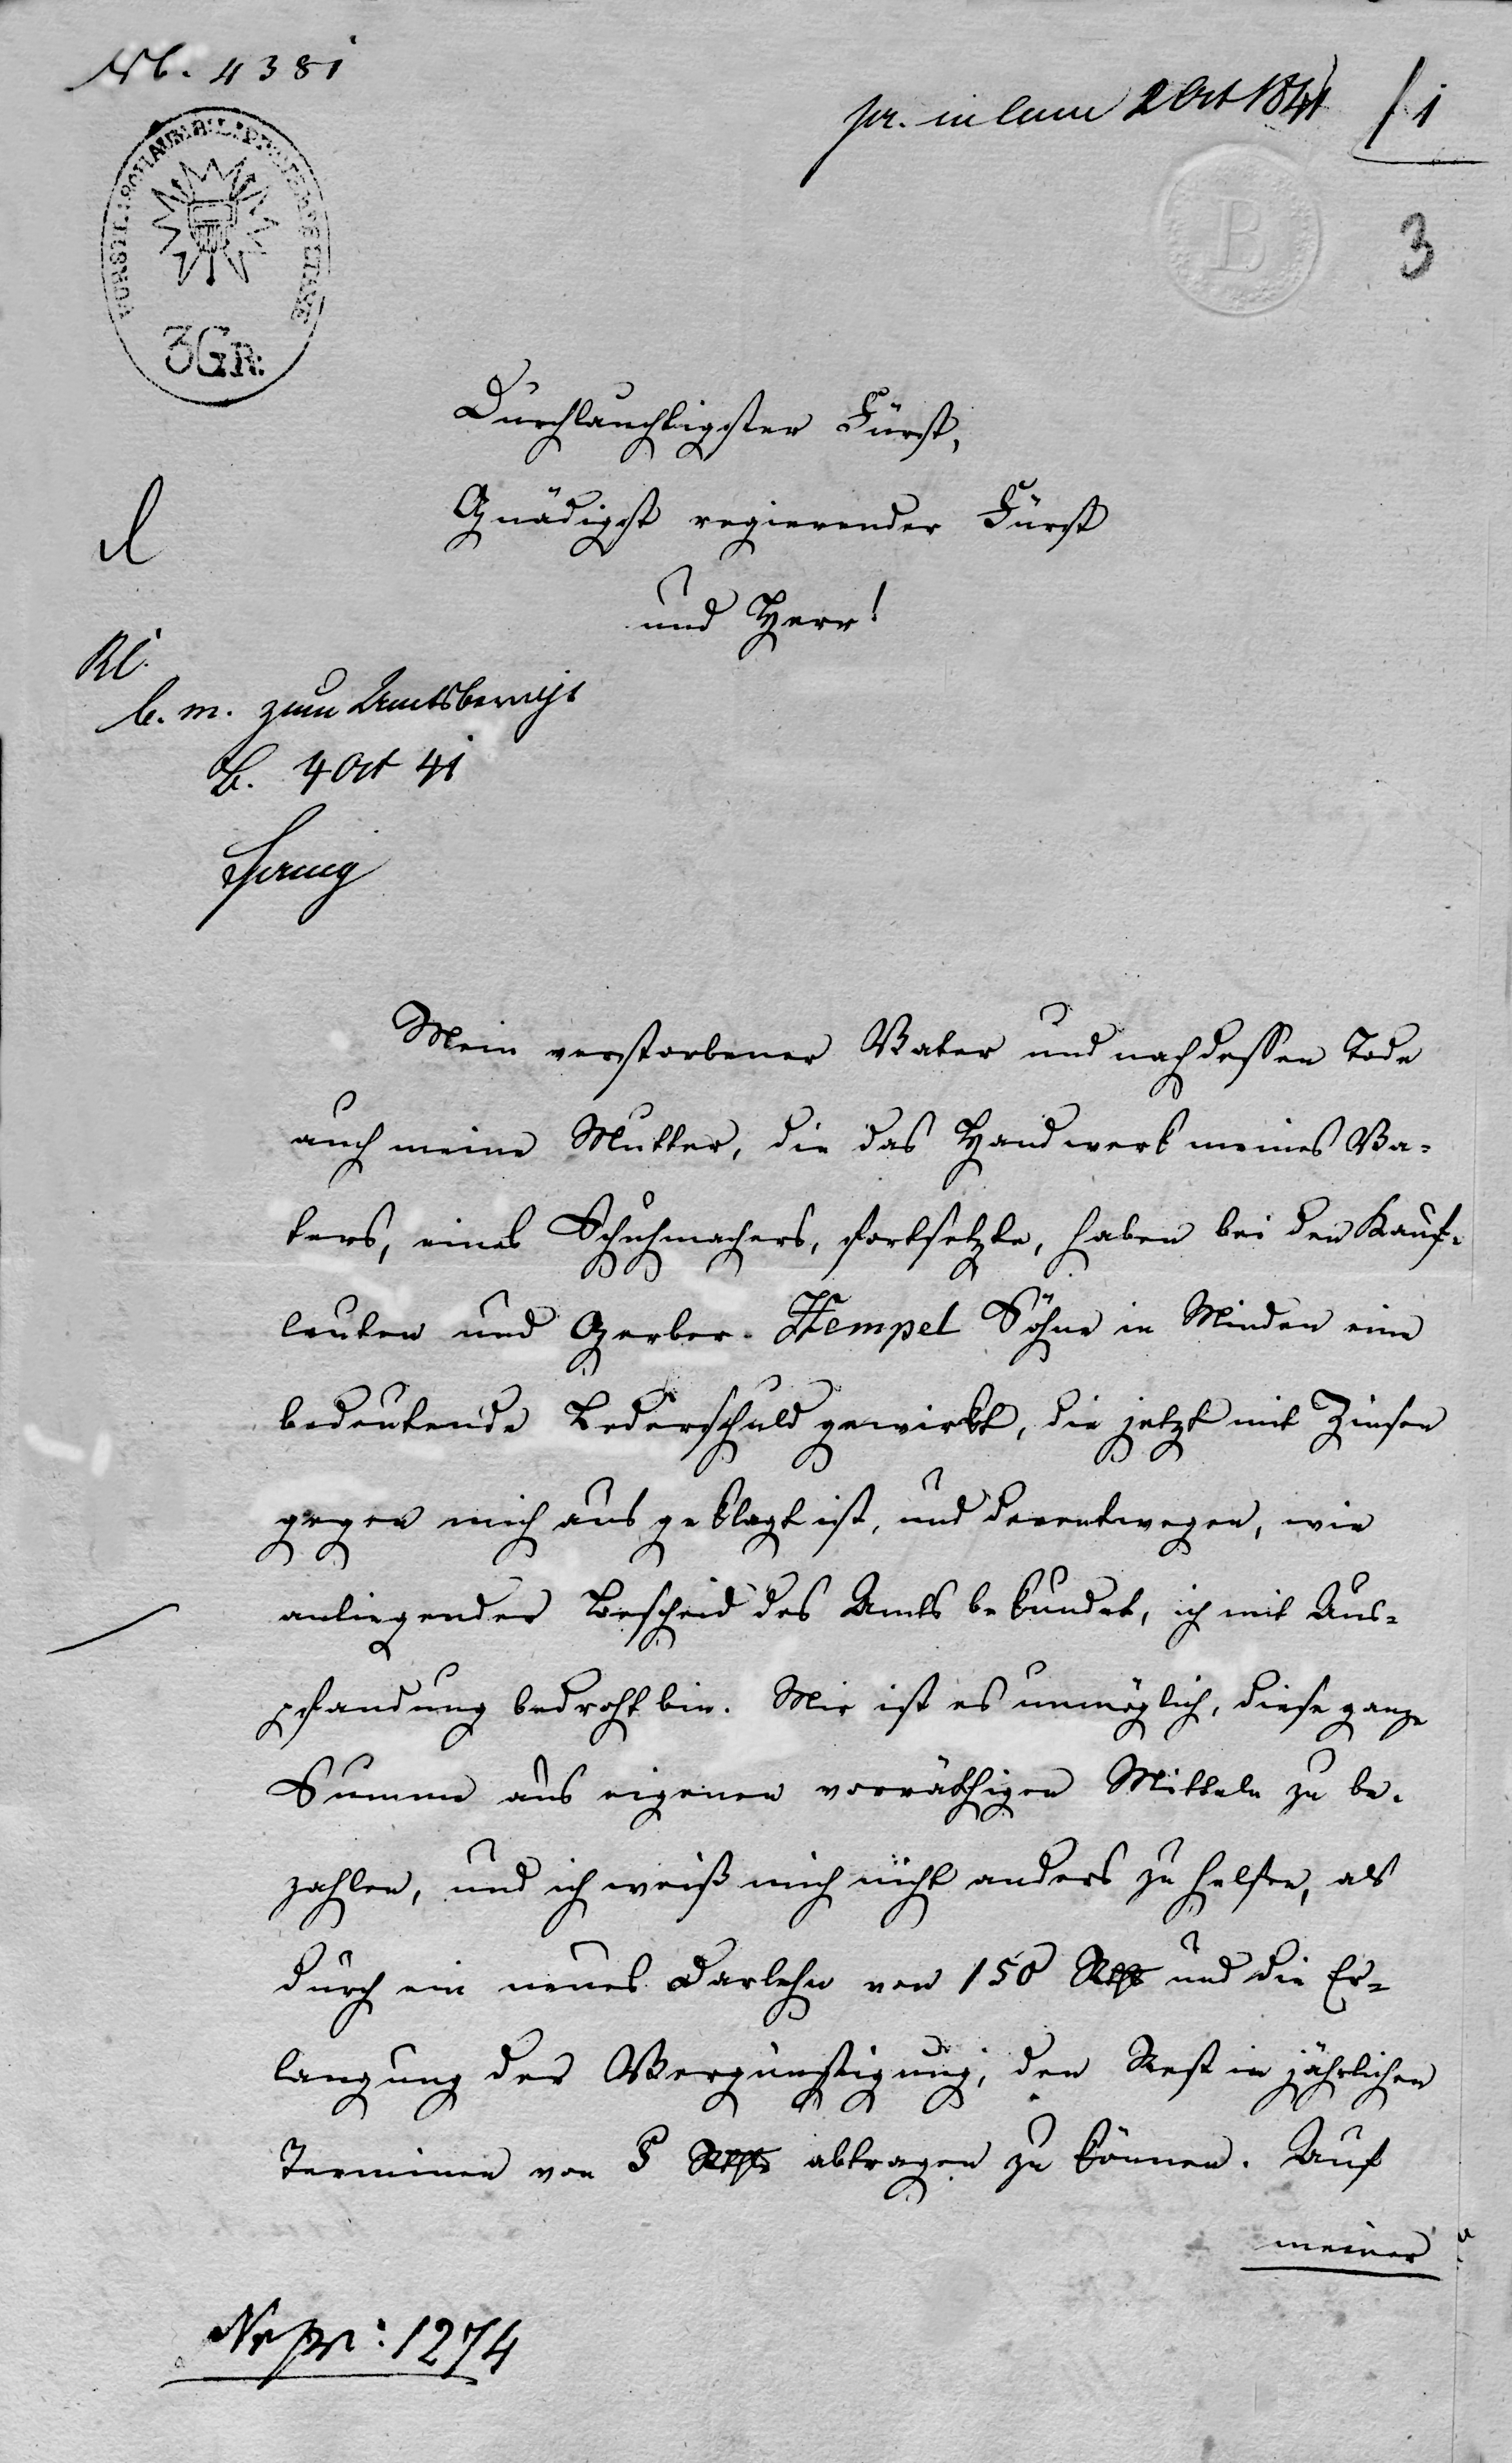 Nb. 4381
pr. in Cam 2 Oct 1841
1
3
B
3 GR:
Durchlauchtigster Fürst,
Gnädigst regierender Fürst
und Herr!
b. m. zum Amtsbericht
B. 4 Oct 41
Mein verstorbener Vater und nach dessen Tode
auch meine Mutter, die das Handwerk meines Va-
ters, eines Schuhmachers, fortsetzte, haben bei den Kauf-
leuten und Gerber Hempel Söhne in Minden eine
bedeutende Lederschuld gewirkt, die jetzt mit Zinsen
gegen mich aus geklagt ist, und derentwegen, wie
anliegender Bescheid des Amts bekundet, ich mit Aus-
pfandung bedroht bin. Mir ist es unmöglich, diese ganze
Summe aus eigenen vorräthigen Mitteln zu be-
zahlen, und ich weiß mich nicht anders zu helfen, als
durch ein neues Darlehn von 150 Rthlr und die Er-
langung der Vergünstigung, den Rest in jährlichen
Terminen von 5 Rthlr abtragen zu können. Auf
meiner
Nr pr: 1274